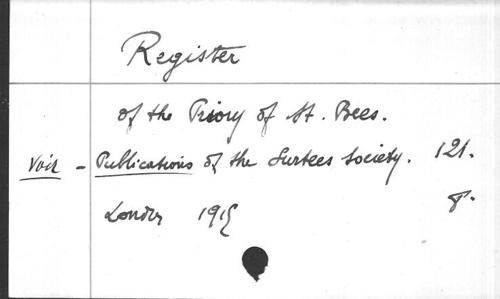 Register
of the Priory of St. Bees.
Voir - Publications of the Surtees Society. 121.
London 1915 8°